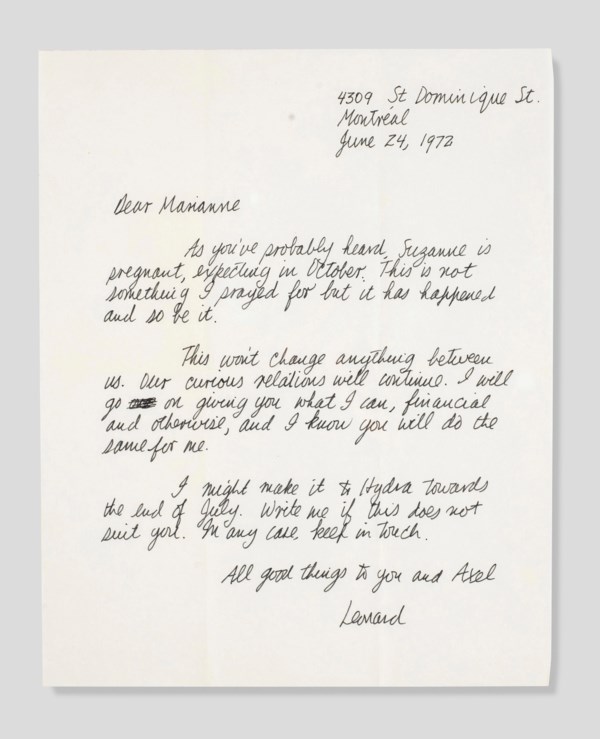 4309 St Dominique St.
Montréal
June 24, 1972
Dear Marianne
As you've probably heard, Suzanne is
pregnant, expecting in October. This is not
something I prayed for but it has happened
and so be it.
This won't change anything between
us. Our curious relations will continue. I will
go on giving you what I can, financial
and otherwise, and I know you will do the
same for me.
I might make it to Hydra towards
the end of July. Write me if this does not
suit you. In any case keep in touch.
All good things to you and Axel
Leonard